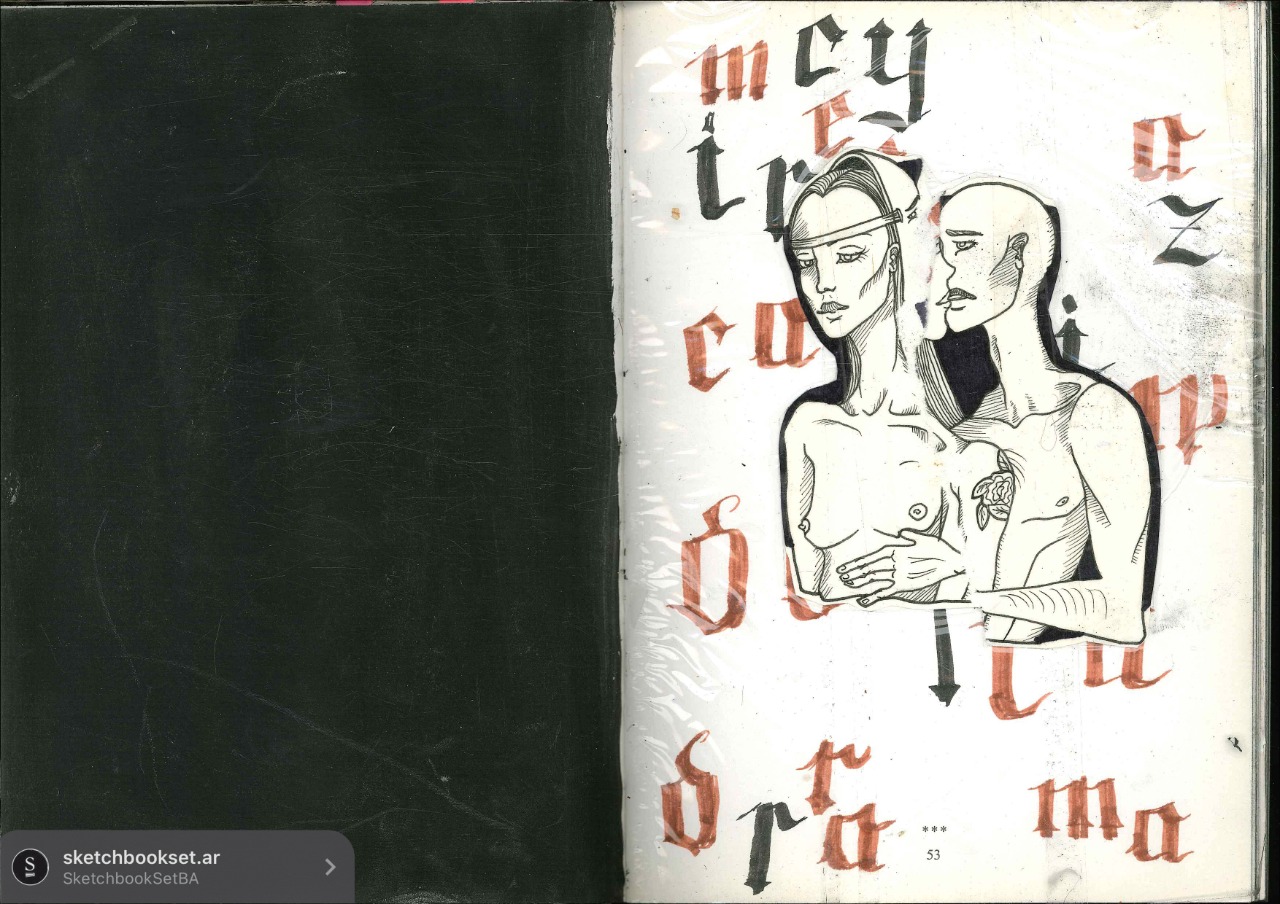 m cy
e
i r
a
z
c a
i
d
l u
r
d r a
m a
***
53
sketchbookset.ar
SketchbookSetBA